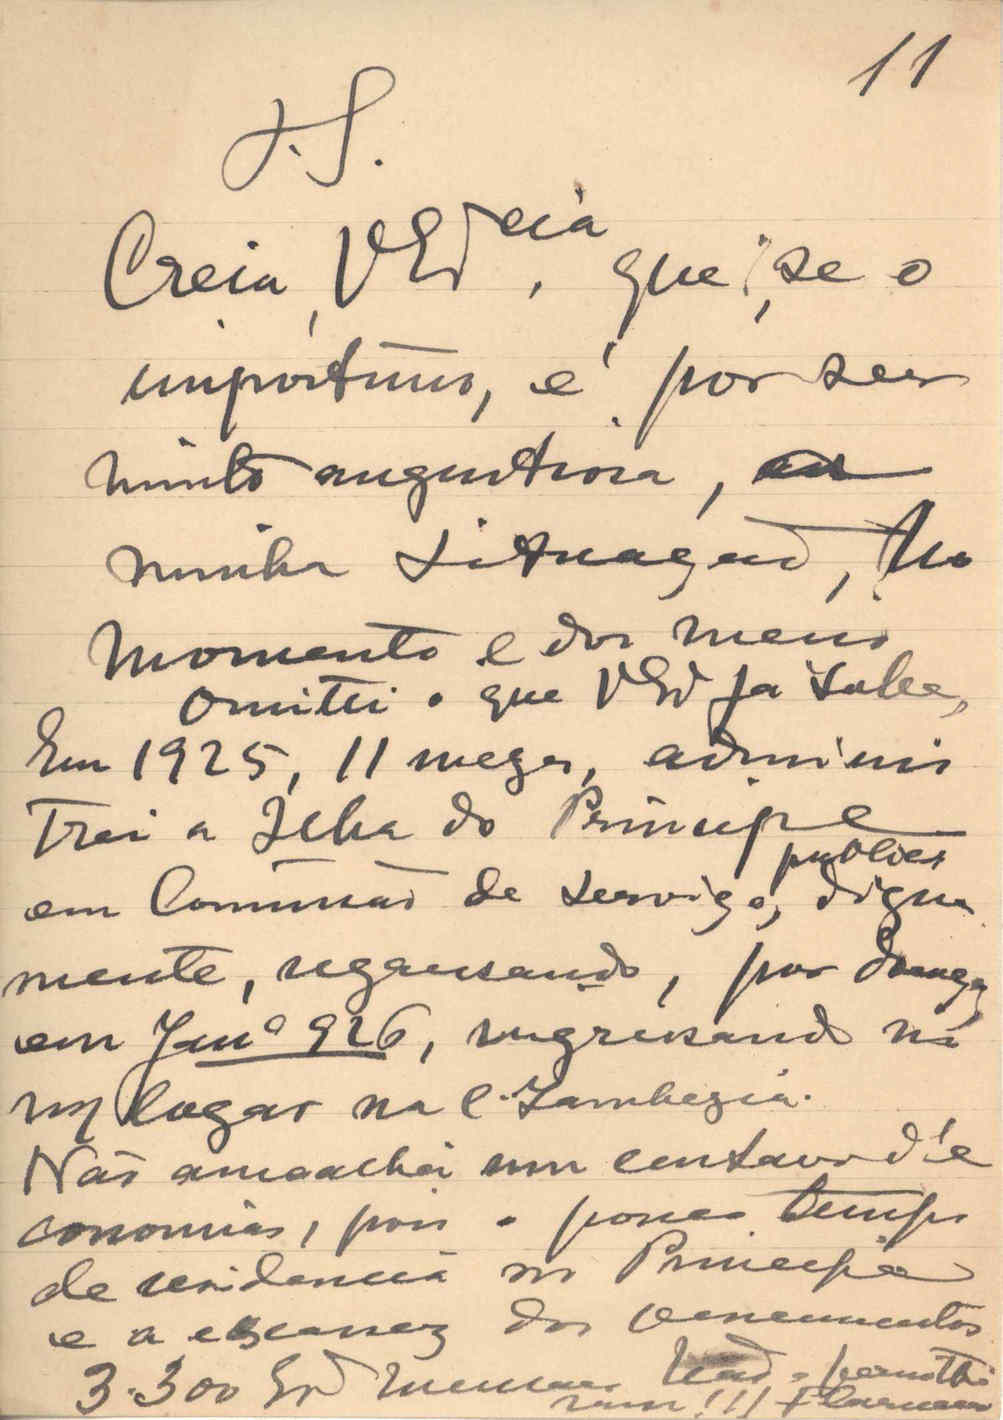 11
J. S.
Creia, VExcia, que, se o
importuno, é por ser
muito angustiosa, a
minha situação, no
momento e dos meus
Omitti o que VEx já sabe,
Em 1925, 11 mezes, adminis
trei a Ilha do Principe
publico
em Comissão de serviço, digna
mente, regressando, por doença
em Janº 926, ingressando no
lugar na C. Zambezia.
Não amealhei um centavo d'e
conomias, pois o pouco tempo
de residencia no Principe
e a escassez dos vencimentos
3.300 mensaes Não o permitti
ram!!!